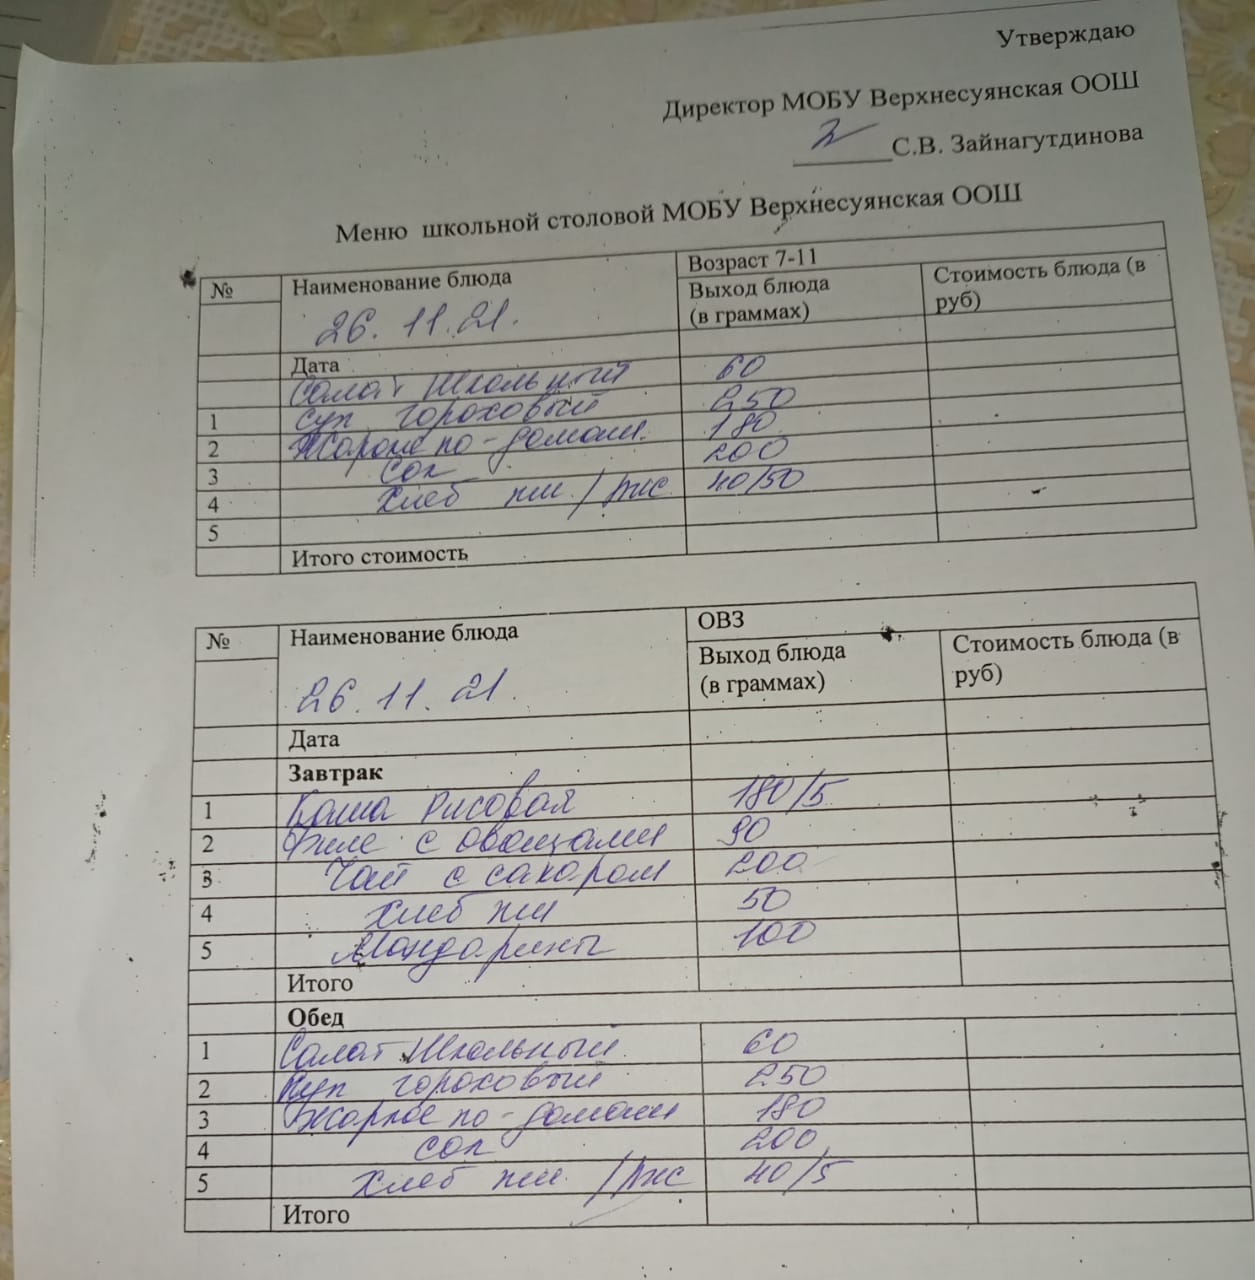 Утверждаю
Директор МОБУ Верхнесуянская ООШ
С.В. Зайнагутдинова
Меню школьной столовой МОБУ Верхнесуянская ООШ
№ Наименование блюда Возраст 7-11
Выход блюда (в граммах) Стоимость блюда (в руб)
26.11.21.
Дата
Салат Школьный 60
1 суп гороховый 250
2 Жаркое по-домаш. 180
3 Сок 200
4 Хлеб пш. / рж с 40/50
5
Итого стоимость
№ Наименование блюда ОВЗ
Выход блюда (в граммах) Стоимость блюда (в руб)
26.11.21.
Дата
Завтрак
1 Каша рисовая 180/5
2 Филе с овощами 90
3 Чай с сахаром 200
4 Хлеб пш 50
5 Мандарины 100
Итого
Обед
1 Салат Школьный 60
2 Суп гороховый 250
3 Жаркое по-домаш 180
4 сок 200
5 Хлеб пш. / рж с 40/5
Итого